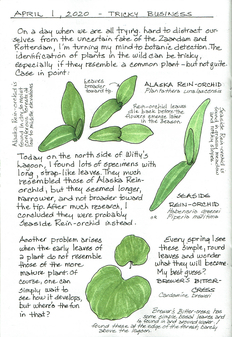 APRIL 1, 2020 - TRICKY BUSINESS
On a day when we are all trying hard to distract our-
selves from the uncertain fate of the Zaandam and
Rotterdam, I'm turning my mind to botanic detection. The
identification of plants in the wild can be tricky,
especially if they resemble a common plant - but not quite.
Case in point:
Leaves
broader
toward tip
ALASKA REIN-ORCHID
Rein-orchid leaves
die back before the
flowers emerge later
in the season.
Today on the north side of
Lagoon, I found lots of specimens with
long, strap-like leaves. They much
resembled those of Alaska Rein-
orchid, but they seemed longer,
narrower, and not broader toward
the tip. After much research, I
concluded they were probably
Seaside Rein-orchid instead.
SEASIDE
REIN-ORCHID
Habenaria greenei
or
Another problem arises
when the early leaves of
a plant do not resemble
those of the more
mature plant. Of
course, one can
simply wait to
see how it develops,
but where's the fun
in that?
Every spring I see
these simple, round
leaves and wonder
what they will become.
My best guess?
BREWER'S BITTER-
CRESS
Cardamine breweri
Brewer's Bitter-cress has
some simple basal leaves and
is found in
found these at the edge of the forest, barely
above the lagoon.